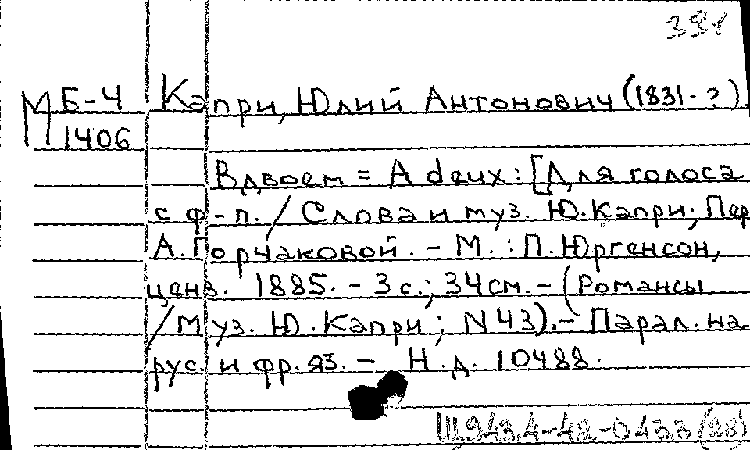 391
М Б-4 Капри, Юлий Антонович (1831-?)
1406
Вдвоем = A deux: [Для голоса
с ф-п. / Слова и муз. Ю. Капри; Пер.
А. Горчаковой. - М.: П. Юргенсон,
ценз. 1885. - 3 с.; 34 см. - (Романсы
/ Муз. Ю. Капри; N 43). - Парал. на
рус. и фр. яз. - Н.д. 10488.
Щ943.4-48-0433(28)